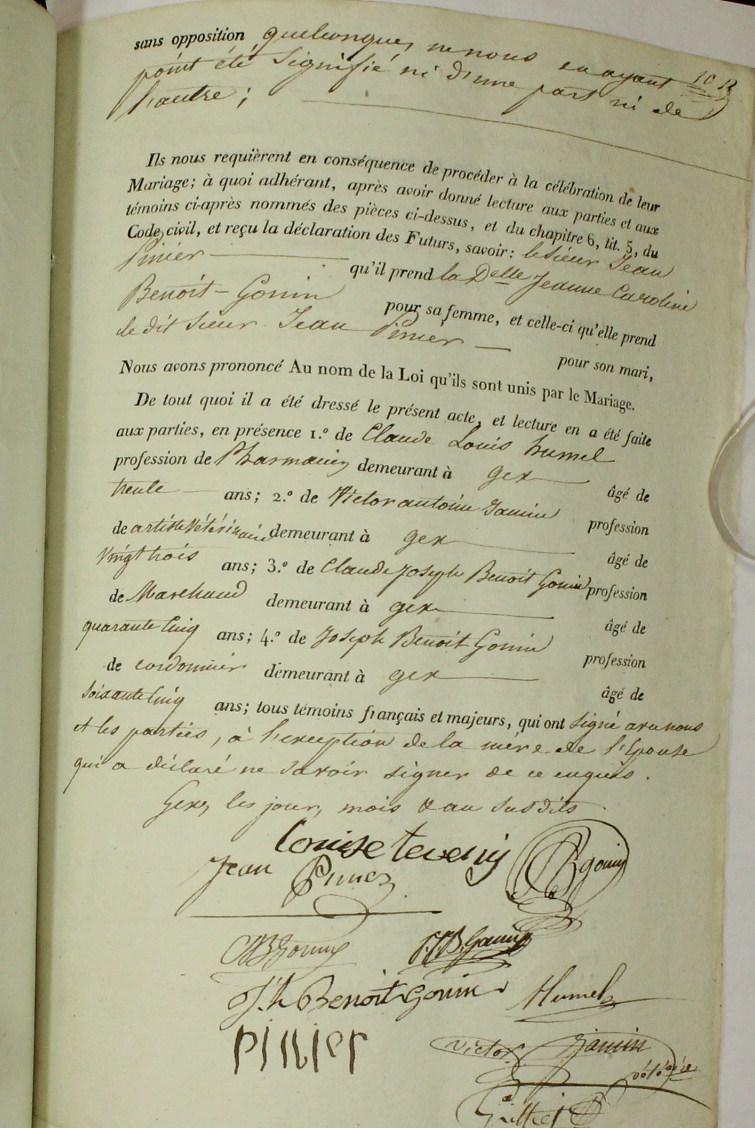 sans opposition quelconque, ne nous en ayant
point été signifié ni d'une part ni de
l'autre ;
Ils nous requièrent en conséquence de procéder à la célébration de leur
Mariage; à quoi adhérant, après avoir donné lecture aux parties et aux
témoins ci-après nommés des pièces ci-dessus, et du chapitre 6, tit. 5, du
Code civil, et reçu la déclaration des Futurs, savoir: le Sieur Jean
Pinier qu'il prend la Delle Jeanne Caroline
Benoit-Gonin pour sa femme, et celle-ci qu'elle prend
le dit Sieur Jean Pinier pour son mari,
Nous avons prononcé Au nom de la Loi qu'ils sont unis par le Mariage.
De tout quoi il a été dressé le présent acte, et lecture en a été faite
aux parties, en présence 1.º de Claude Louis humel
profession de Pharmacien demeurant à gex âgé de
trente ans; 2.º de Victor antoine Janin profession
de artiste vétérinaire demeurant à gex âgé de
Vingt trois ans; 3.º de Claude Joseph Benoit Gonin profession
de Marchand demeurant à gex âgé de
quarante Cinq ans; 4.º de Joseph Benoit Gonin profession
de cordonnier demeurant à gex âgé de
Soixante Cinq ans; tous témoins français et majeurs, qui ont signé avec nous
et les parties, à l'exception de la mère de l'Epouse
qui a déclaré ne savoir signer de ce enquis.
Gex, les jour, mois & an susdits.
Louise
Jean Pinier
Bgonin
JB Gonin
Jh Benoit Gonin Humel
PINIER
Victor Janin